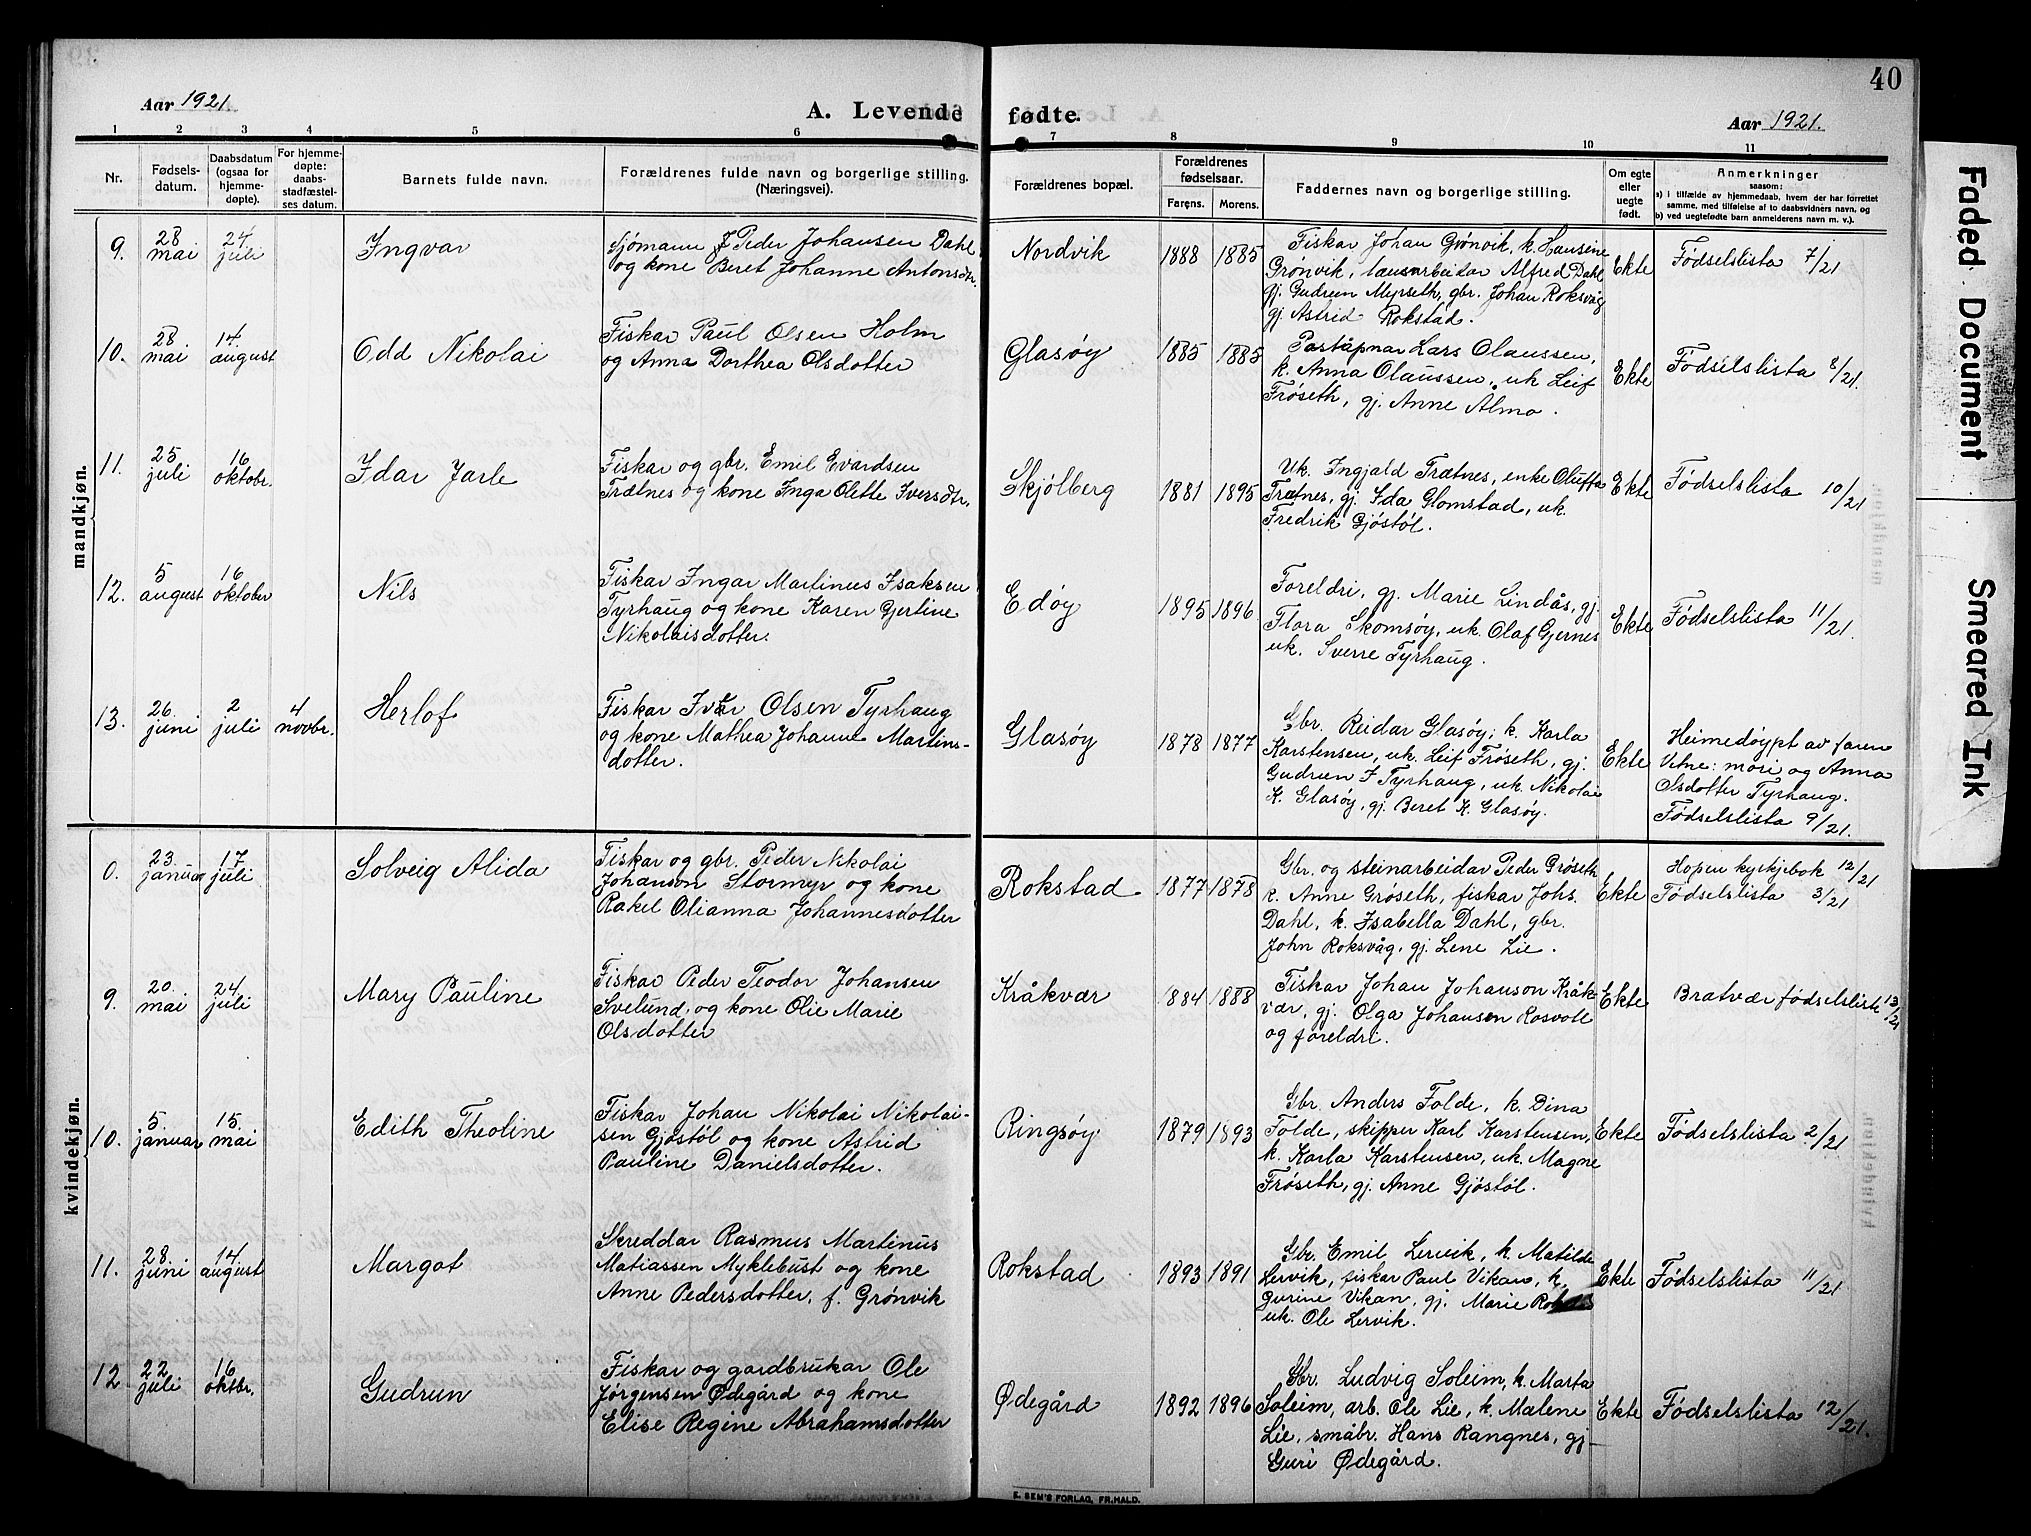 40
Aar 1921.
A. Levende fødte.
Aar 1921.
1 2 3 4 5 6 7 8 9 10 11
Nr.
Fødsels-
datum.
Daabsdatum
(ogsaa for
hjemme-
døpte).
For hjemme-
døpte:
daabs-
stadfæstel-
ses datum.
Barnets fulde navn.
Forældrenes fulde navn og borgerlige stilling.
(Næringsvei).
Forældrenes bopæl.
Forældrenes
fødselsaar.
Farens. Morens.
Faddernes navn og borgerlige stilling.
Om egte
eller
uegte
født.
Anmerkninger
saasom:
a) i tilfælde av hjemmedaab, hvem der har forrettet
samme, med tilføielse af to daabsvidners navn, og
b) ved uegtefødte barn anmelderens navn m. v.).
mandkjøn.
9.
28
mai
24
juli
Ingvar
Sjömann J Peder Johansen Dahl
og kone Beret Johanne Antonsdtr.
Nordvik
1888 1885
Fiskar Johan Grönvik, k. Hansine
Grönvik, lausarbeidar Alfred Dahl
gj. Gudrun Myrseth, gbr. Johan Roksvåg
gj. Astrid Rokstad.
Ekte
Födselslista 7/21
10.
28
mai
14
august
Odd Nikolai
Fiskar Paul Olsen Holm
og Anna Dorthea Olsdotter
Glasøy
1885 1885
Poståpnar Lars Olaussen,
k. Anna Olaussen, uk Leif
Fröseth, gj. Anne Almo.
Ekte
Födselslista 8/21.
11.
25
juli
16
oktobr.
Idar Jarle
Fiskar og gbr. Emil Evardsen
Trætnes og kone Inga Olette Iversdtr.
Skjölberg
1881 1895
Uk. Ingjald Trætnes, enke Oluffa
Trætnes, gj. Ida Glomstad, uk.
Fredrik Gjöstöl.
Ekte
Födselslista 10/21
12.
5
august
16
oktober
Nils
Fiskar Ingar Martinus Isaksen
Tyrhaug og kone Karen Gjertine
Nikolaisdotter.
Edöy
1895 1896
Foreldri, gj. Marie Lindås, gj.
Flora Skomsöy, uk. Olaf Gjernes
uk. Sverre Tyrhaug.
Ekte
Födselslista 11/21.
13.
26
juni
2
juli
4
novbr.
Herlof
Fiskar Ivar Olsen Tyrhaug
og kone Mathea Johanne Martins-
dotter.
Glasöy
1878 1877
Gbr. Reidar Glasöy, k. Karla
Karstensen, uk. Leif Fröseth, gj.
Gudrun I Tyrhaug, uk. Nikolai
K. Glasöy, gj. Beret K. Glasöy.
Ekte
Heimedöypt av faren
Vitne: mori og Anna
Olsdotter Tyrhaug.
Födselslista 9/21.
kvindekjøn.
0.
23
januar
17
juli
Solveig Alida
Fiskar og gbr. Peder Nikolai
Johanson Stormyr og kone
Rakel Olianna Johannesdotter
Rokstad
1877 1878
Gbr. og steinarbeidar Peder Gröseth
k. Anne Gröseth, fiskar Johs.
Dahl, k. Isabella Dahl, gbr.
John Roksvåg, gj. Lene Lie.
Ekte
Hopen kyrkjebok 12/21
Födselslista 3/21
9.
20
mai
24
juli
Mary Pauline
Fiskar Peder Teodor Johansen
Svelund, og kone Olie Marie
Olsdotter
Kråkvær
1884 1888
Fiskar Johan Johanson Kråk-
vær, gj. Olga Johansen Rosvoll
og foreldri.
Ekte
Bratvær födselsliste 13/21
10.
5
januar
15
mai
Edith Theoline
Fiskar Johan Nikolai Nikolai-
sen Gjöstöl og kone Astrid
Pauline Danielsdotter.
Ringsöy
1879 1893
Gbr. Anders Folde, k. Dina
Folde, skipper Karl Karstensen,
k. Karla Karstensen, uk. Magne
Fröseth, gj. Anne Gjöstöl.
Ekte
Födselslista 2/21
11.
28
juni
14
august
Margot
Skreddar Rasmus Martinus
Matiassen Myklebust og kone
Anne Pedersdotter, f. Grönvik
Rokstad
1893 1891
Gbr. Emil Lervik, k. Matilde
Lervik, fiskar Paul Vikan, k.
Gurine Vikan, gj. Marie
uk. Ole Lervik.
Ekte
Födselslista 11/21
12
22
juli
16
oktbr.
Gudrun
Fiskar og gardbrukar Ole
Jörgensen Ødegård og kone
Elise Regine Abrahamsdotter
Ødegård
1892 1896
Gbr. Ludvig Soleim, k. Marta
Soleim, arb. Ole Lie, k. Malene
Lie, småbr. Hans Rangnes, gj.
Guri Ødegård.
Ekte
Födselslista 12/21.
E. SEM'S FORLAG, FR.HALD.
Faded Document
Smeared Ink